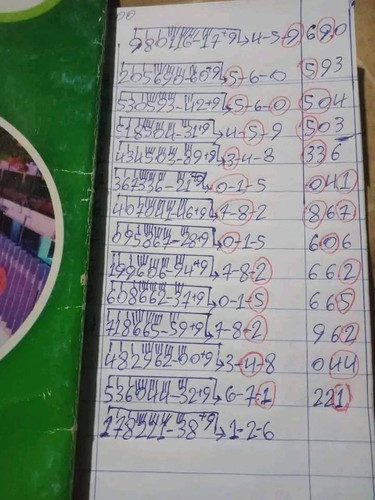 980116-17+9→4-5-9 690
295690-80+9→5-6-0 593
530593-42+9→5-6-0 504
518504-31+9→4-5-9 503
434503-89+9→3-4-8 336
367336-21+9→0-1-5 041
407041-46+9→7-8-2 867
095867-28+9→0-1-5 606
199606-94+9→7-8-2 662
608662-37+9→0-1-5 665
718665-59+9→7-8-2 962
482962-90+9→3-4-8 044
536044-32+9→6-7-1 221
178221-38+9→1-2-6